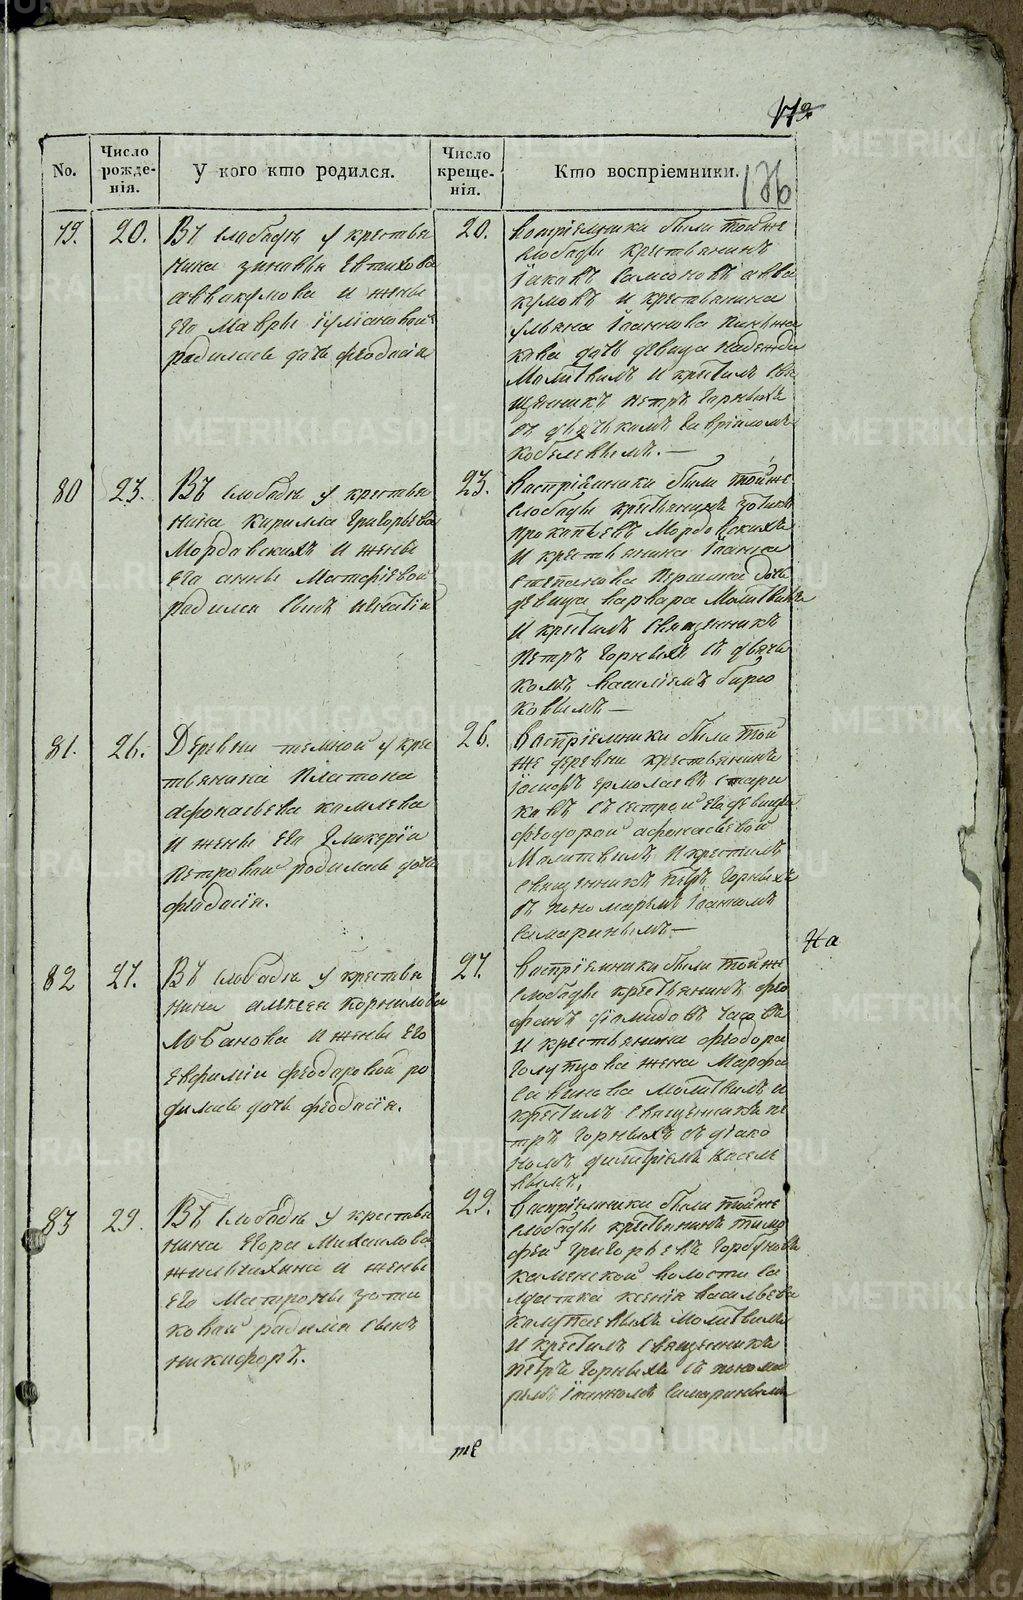 173
136
No.
Число рожде-нія.
У кого кто родился.
Число креще-нія.
Кто воспріемники.
79.
20.
Въ слободѣ у крестья
нина зиновья Евтихова
аввакумова и жены
его Мавры Іуліановой
родилась дочь феодосія
20.
воспріемники были тойже
слободы крестьянинъ
Іаковъ Самсоновъ авва
кумовъ и крестьянина
ульяна Іоаннова
дочь девица надежда
Молитвилъ и крестилъ свя
щенникъ петръ Горныхъ
съ дьячкомъ Гавріиломъ
кобелевымъ.—
80
23.
Въ слободѣ у крестья
нина кирилла Григорьева
Мордовскихъ и жены
его анны Матфіевой
родился сынъ игнатій
23.
Воспріемники были тойже
слободы крестьянинъ зотикъ
прокопьевъ Мордовскихъ
и крестьянина Іоанна
степанова Першина дочь
девица варвара Молитвилъ
и крестилъ священникъ
петръ Горныхъ съ дьяч
комъ василіемъ бирю
ковымъ—
81.
26.
Деревни темной у крес
тьянина платона
афонасьева комлева
и жены его Гликеріи
петровой родилась дочь
феодосія.
26.
Воспріемники были той
же деревни крестьянинъ
Іосифъ ермолаевъ стари
ковъ съ сестрой его девица
феодорой афонасьевой
Молитвилъ и крестилъ
священникъ петръ Горныхъ
съ пономаремъ Іоанномъ
Самаринымъ—
На
82
27.
Въ слободѣ у крестья
нина алексея корнилова
Лобанова и жены его
Евфиміи феодоровой ро
дилась дочь феодосія.
27.
Воспріемники были тойже
слободы крестьянинъ фео
фанъ діомидовъ
и крестьянина феодора
Голупцова жена Марфа
Савинова молитвилъ и
крестилъ священникъ пе
тръ Горныхъ съ діако
номъ димитріемъ киселе
вымъ.
83
29.
Въ слободѣ у крестья
нина Егора Михаилова
и жены
его Матроны зоти
ковой родился сынъ
никифоръ.
29.
Воспріемники были тойже
слободы крестьянинъ тимо
фей Григорьевъ Горбуновъ
каменской волости со
лдатка ксенія васильева
молитвилъ
и крестилъ священникъ
петръ Горныхъ съ понома
ремъ Іоанномъ Самаринымъ
те
METRIKI.GASO-URAL.RU